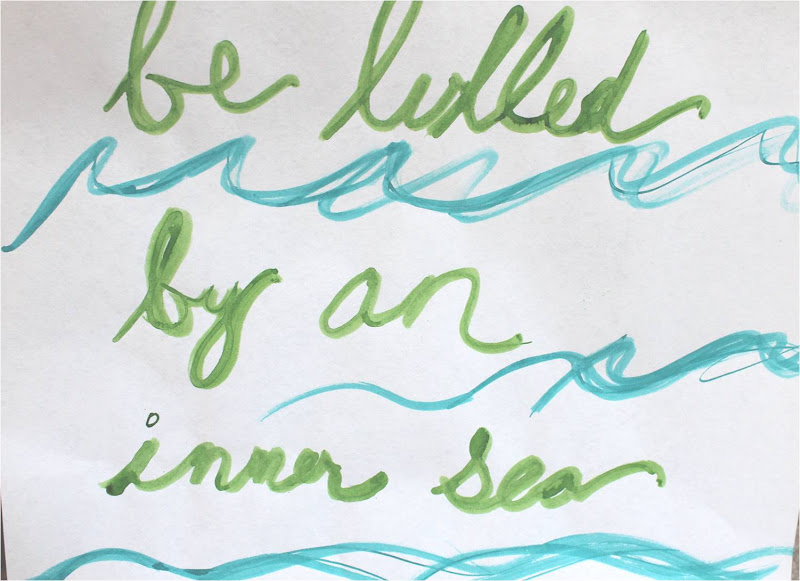 be lulled
by an
inner sea